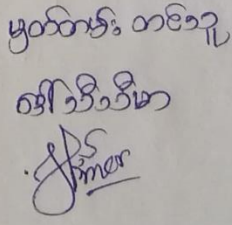 မှတ်တမ်း တင်သူ
ဒေါ်သီသီမာ